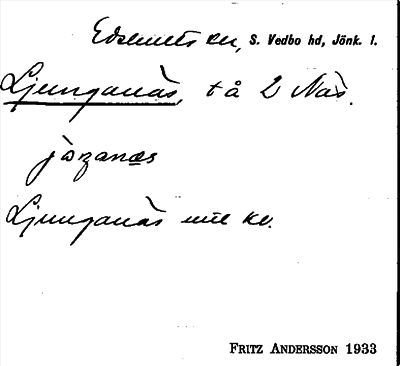 Edshults sn, S. Vedbo hd, Jönk. l.
Ljunganäs, t å 2 Näs.
Ljunganäs
FRITZ ANDERSSON 1933